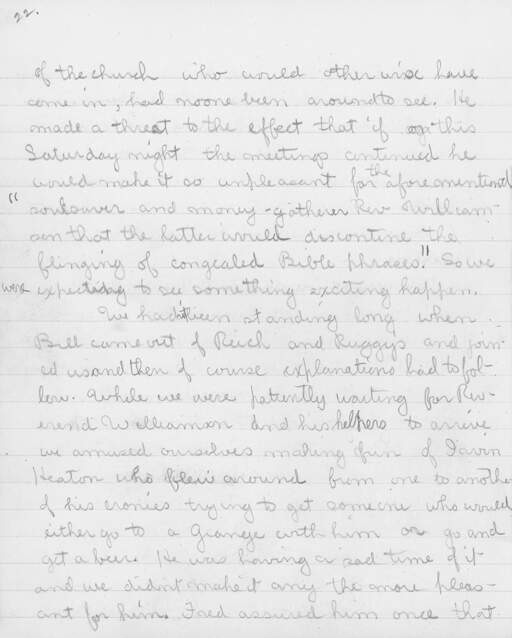 22.
of the church who would otherwise have
come in, had noone been around to see. He
made a threat to the effect that if on this
Saturday night the meetings continued he
would make it so unpleasant for the aforementioned
" soulsaver and money-gatherer Rev William-
son that the latter would discontine the
flinging of congealed Bible phrases." So we
were expecting to see something exciting happen.
We hadn't been standing long when
Bill came out of Reich and Ruggys and join-
ed us and then of course explanations had to fol-
low. While we were patiently waiting for Rev-
erend Williamson and his helpers to arrive
we amused ourselves making fun of Irvin
Heaton who flew around from one to another
of his cronies trying to get someone who would
either go to a Grange with him or go and
get a beer. He was having a sad time of it
and we didn't make it any the more pleas-
ant for him. Fred assured him once that